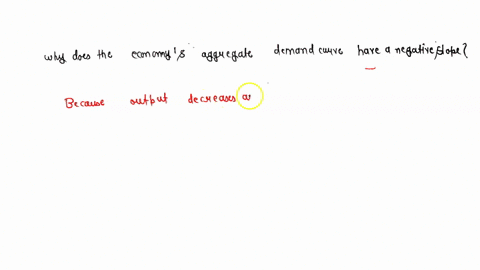 why does the economy's aggregate demand curve have a negative slope?
Because output decreases a